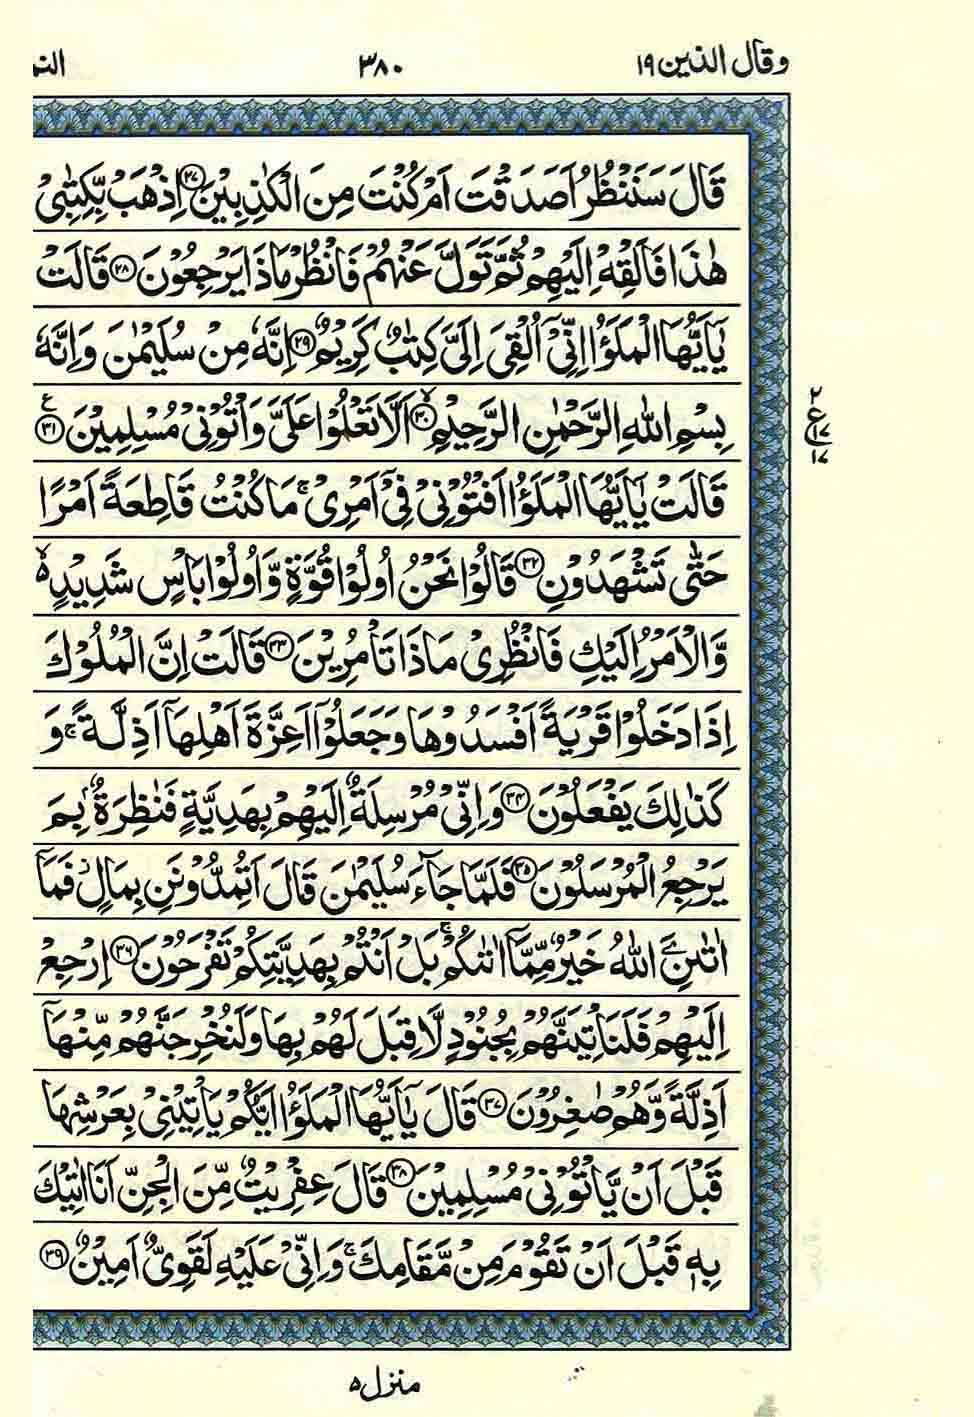 وقال الذين ١٩ ٣٨٠ النم
قَالَ سَنَنْظُرُ اَصَدَقْتَ اَمْ كُنْتَ مِنَ الْكٰذِبِيْنَ ۝٢٧ اِذْهَبْ بِّكِتٰبِيْ
هٰذَا فَاَلْقِهْ اِلَيْهِمْ ثُمَّ تَوَلَّ عَنْهُمْ فَانْظُرْ مَاذَا يَرْجِعُوْنَ ۝٢٨ قَالَتْ
يٰۤاَيُّهَا الْمَلَؤُا اِنِّيْۤ اُلْقِيَ اِلَيَّ كِتٰبٌ كَرِيْمٌ ۝٢٩ اِنَّهٗ مِنْ سُلَيْمٰنَ وَاِنَّهٗ
بِسْمِ اللّٰهِ الرَّحْمٰنِ الرَّحِيْمِ ۝٣٠ۙ اَلَّا تَعْلُوْا عَلَيَّ وَاْتُوْنِيْ مُسْلِمِيْنَ ۝٣١ ع
٢ ع ١٧ ١٧
قَالَتْ يٰۤاَيُّهَا الْمَلَؤُا اَفْتُوْنِيْ فِيْۤ اَمْرِيْ ۚ مَا كُنْتُ قَاطِعَةً اَمْرًا
حَتّٰى تَشْهَدُوْنِ ۝٣٢ قَالُوْا نَحْنُ اُولُوْا قُوَّةٍ وَّاُولُوْا بَاْسٍ شَدِيْدٍ ۙ
وَّالْاَمْرُ اِلَيْكِ فَانْظُرِيْ مَاذَا تَاْمُرِيْنَ ۝٣٣ قَالَتْ اِنَّ الْمُلُوْكَ
اِذَا دَخَلُوْا قَرْيَةً اَفْسَدُوْهَا وَجَعَلُوْۤا اَعِزَّةَ اَهْلِهَاۤ اَذِلَّةً ۚ وَ
كَذٰلِكَ يَفْعَلُوْنَ ۝٣٤ وَاِنِّيْ مُرْسِلَةٌ اِلَيْهِمْ بِهَدِيَّةٍ فَنٰظِرَةٌۢ بِمَ
يَرْجِعُ الْمُرْسَلُوْنَ ۝٣٥ فَلَمَّا جَآءَ سُلَيْمٰنَ قَالَ اَتُمِدُّوْنَنِ بِمَالٍ ؗ فَمَاۤ
اٰتٰىنِۦَ اللّٰهُ خَيْرٌ مِّمَّاۤ اٰتٰىكُمْ ۚ بَلْ اَنْتُمْ بِهَدِيَّتِكُمْ تَفْرَحُوْنَ ۝٣٦ اِرْجِعْ
اِلَيْهِمْ فَلَنَاْتِيَنَّهُمْ بِجُنُوْدٍ لَّا قِبَلَ لَهُمْ بِهَا وَلَنُخْرِجَنَّهُمْ مِّنْهَاۤ
اَذِلَّةً وَّهُمْ صٰغِرُوْنَ ۝٣٧ قَالَ يٰۤاَيُّهَا الْمَلَؤُا اَيُّكُمْ يَاْتِيْنِيْ بِعَرْشِهَا
قَبْلَ اَنْ يَّاْتُوْنِيْ مُسْلِمِيْنَ ۝٣٨ قَالَ عِفْرِيْتٌ مِّنَ الْجِنِّ اَنَا اٰتِيْكَ
بِهٖ قَبْلَ اَنْ تَقُوْمَ مِنْ مَّقَامِكَ ۚ وَاِنِّيْ عَلَيْهِ لَقَوِيٌّ اَمِيْنٌ ۝٣٩
منزل ٥